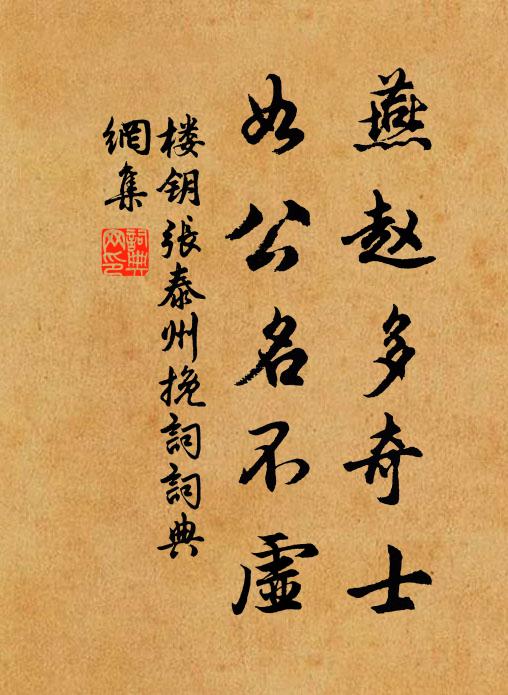 燕赵多奇士
如公名不虚
楼钥张泰州挽词词典
網集
詞典
网印